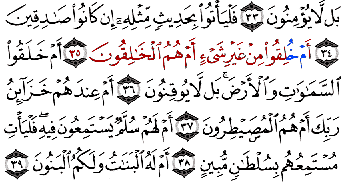 بَل لَّا يُؤْمِنُونَ ٣٣ فَلْيَأْتُوا۟ بِحَدِيثٍ مِّثْلِهِۦٓ إِن كَانُوا۟ صَـٰدِقِينَ
٣٤ أَمْ خُلِقُوا۟ مِنْ غَيْرِ شَىْءٍ أَمْ هُمُ ٱلْخَـٰلِقُونَ ٣٥ أَمْ خَلَقُوا۟
ٱلسَّمَـٰوَٰتِ وَٱلْأَرْضَ ۚ بَل لَّا يُوقِنُونَ ٣٦ أَمْ عِندَهُمْ خَزَآئِنُ
رَبِّكَ أَمْ هُمُ ٱلْمُصَۣيْطِرُونَ ٣٧ أَمْ لَهُمْ سُلَّمٌ يَسْتَمِعُونَ فِيهِ ۖ فَلْيَأْتِ
مُسْتَمِعُهُم بِسُلْطَـٰنٍ مُّبِينٍ ٣٨ أَمْ لَهُ ٱلْبَنَـٰتُ وَلَكُمُ ٱلْبَنُونَ ٣٩